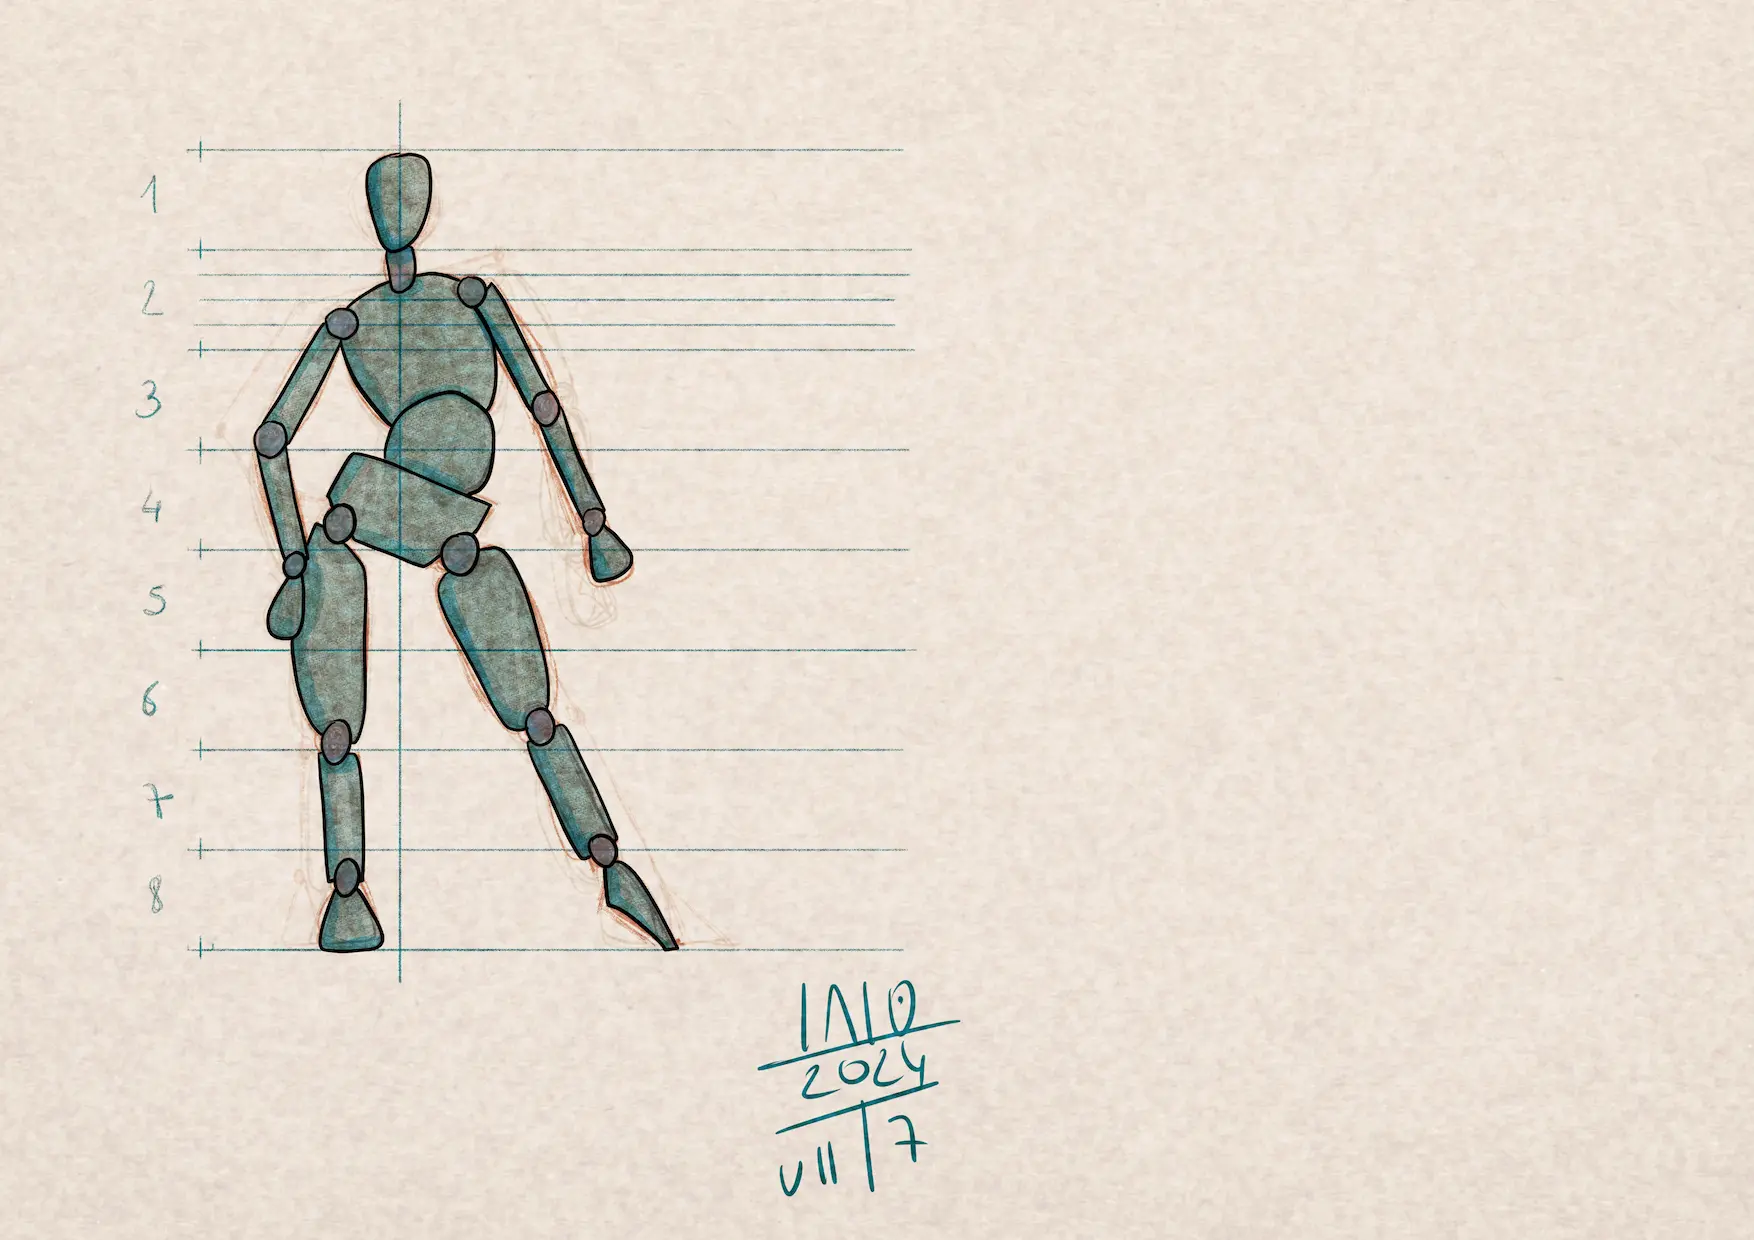 1
2
3
4
5
6
7
8
INIO
2024
VII 7